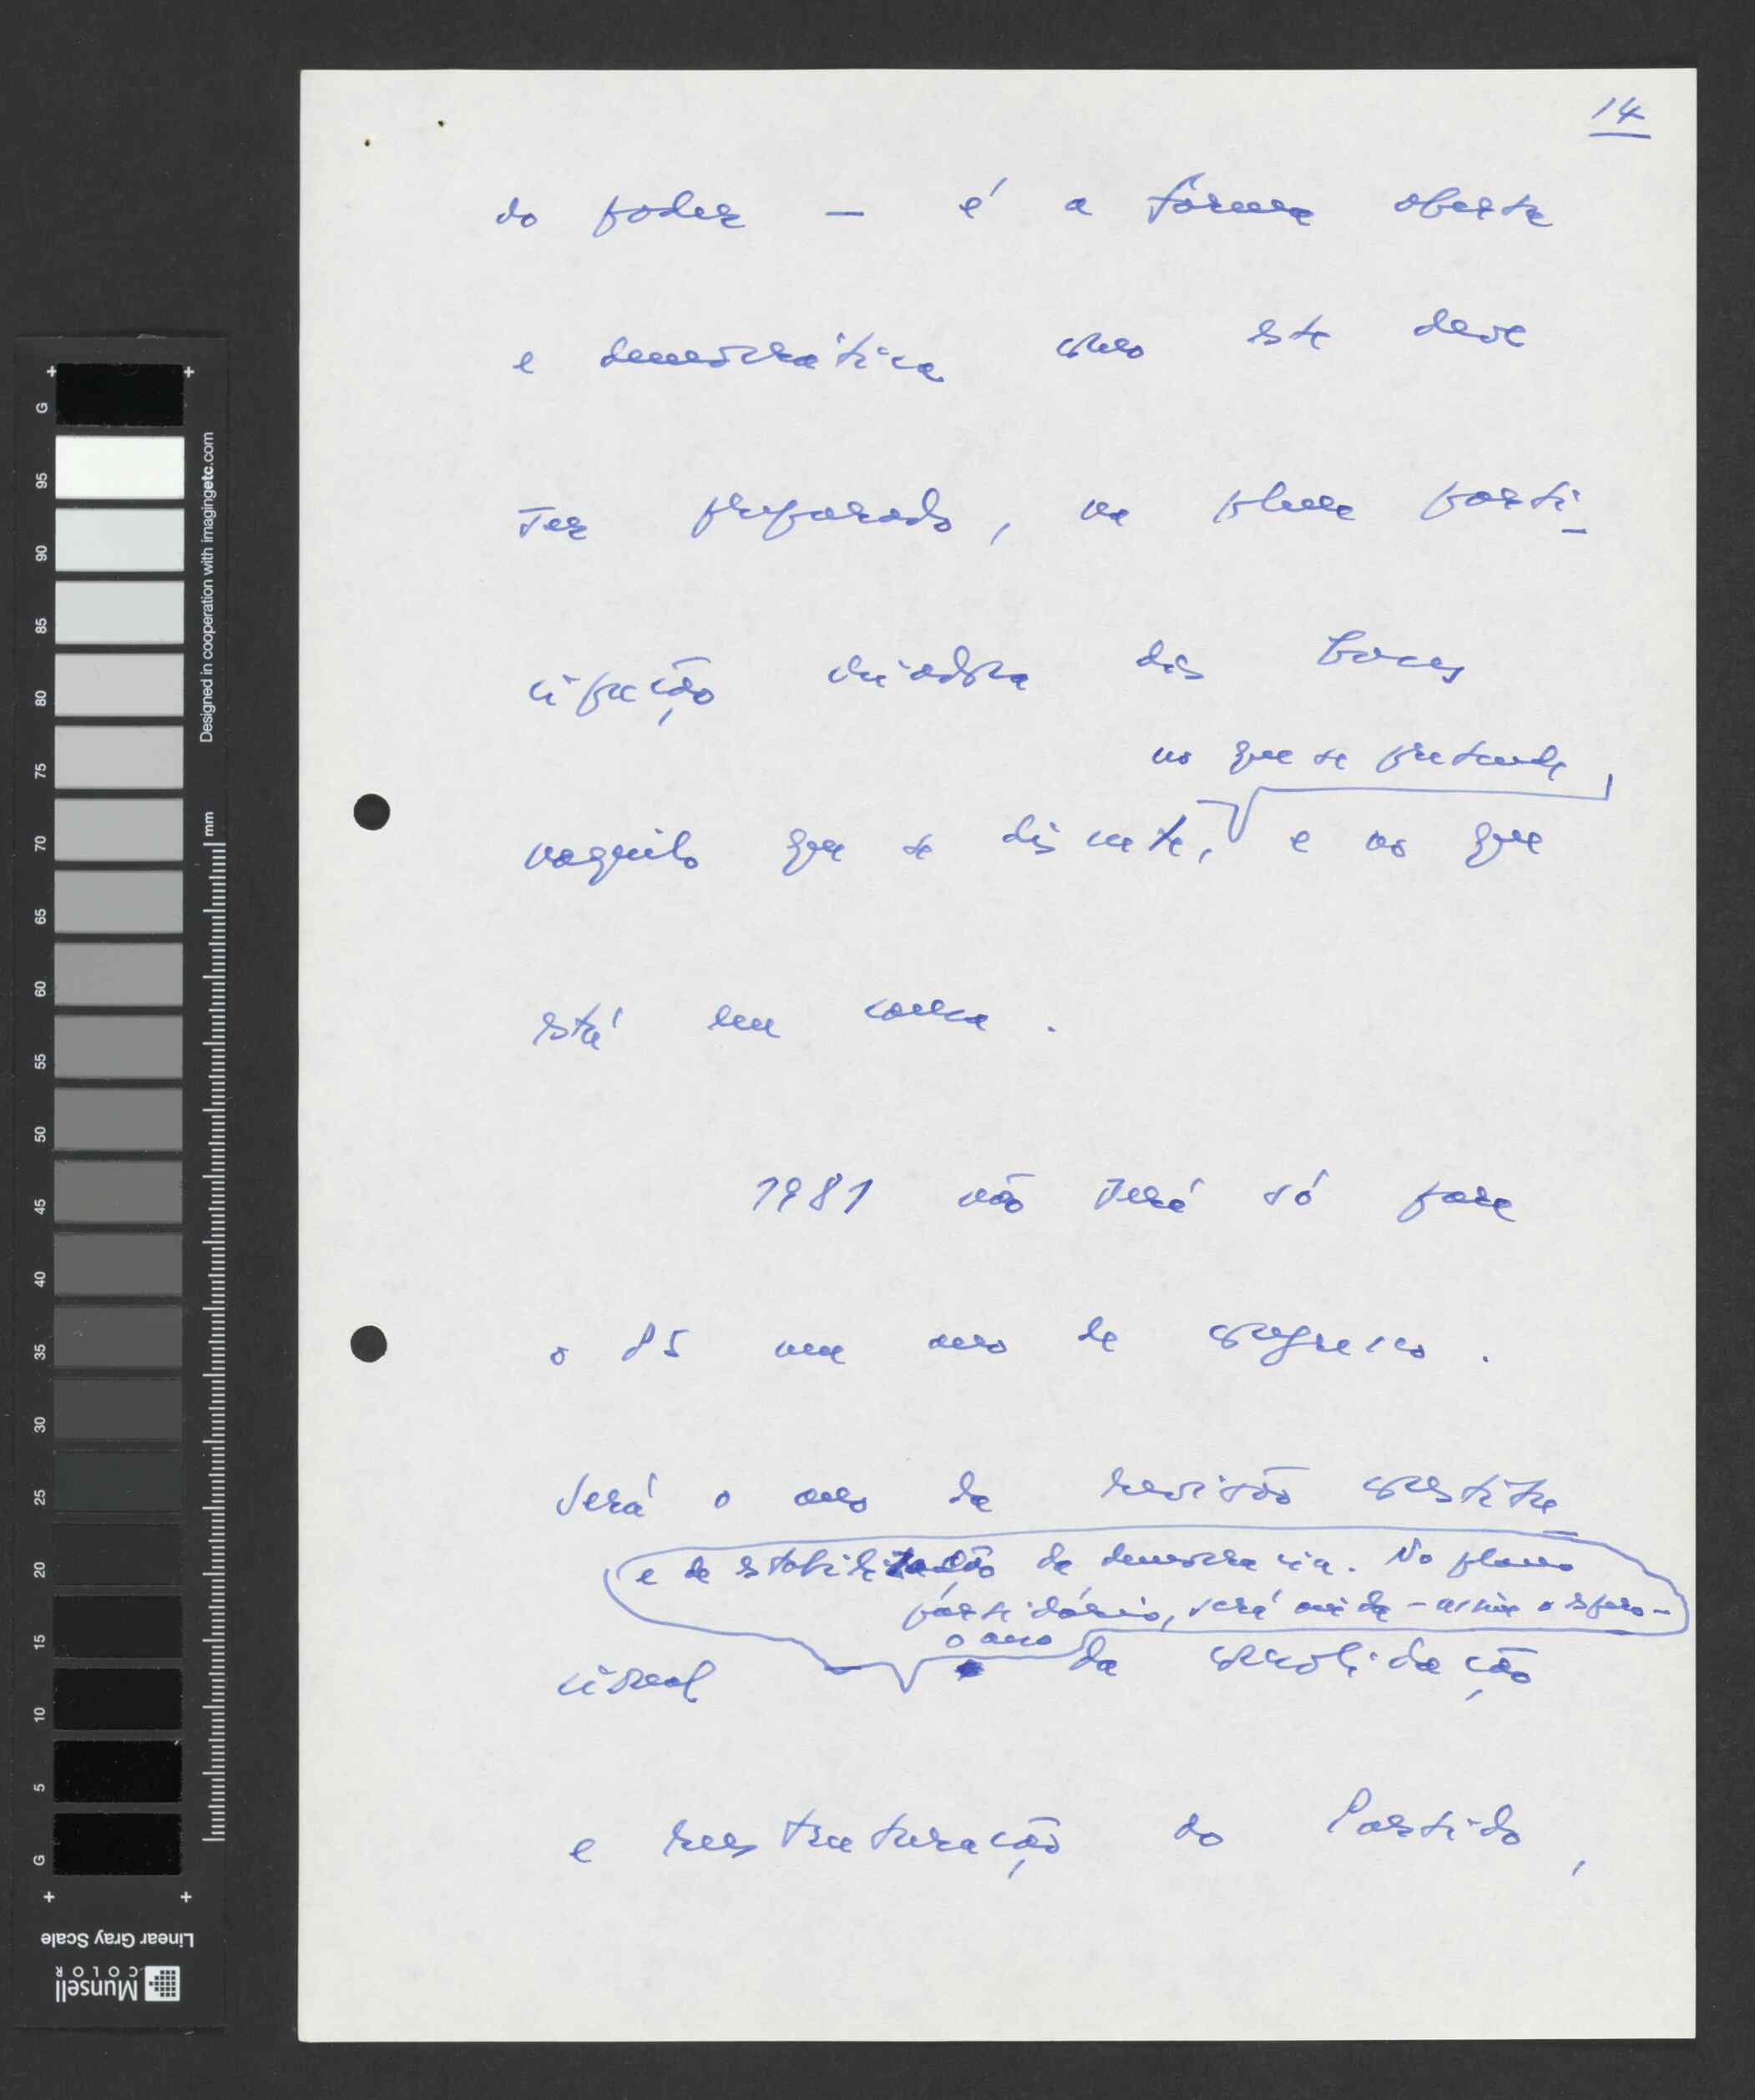 14
do poder — é a forma aberta
e democrática como este deve
ser preparado, na plena parti-
cipação criadora das bases
no que se pretende,
naquilo que se discute, e no que
está em causa.
1981 não será só para
o PS um ano de congresso.
Será o ano da revisão constitu-
e de estabilização da democracia. No plano
partidário, será ainda - assim o espero -
o ano
cional da consolidação
e reestruturação do Partido,
G
95
90
85
80
75
70
65
60
55
50
45
40
35
30
25
20
15
10
5
G
Designed in cooperation with imagingetc.com
mm
Linear Gray Scale
Munsell
COLOR